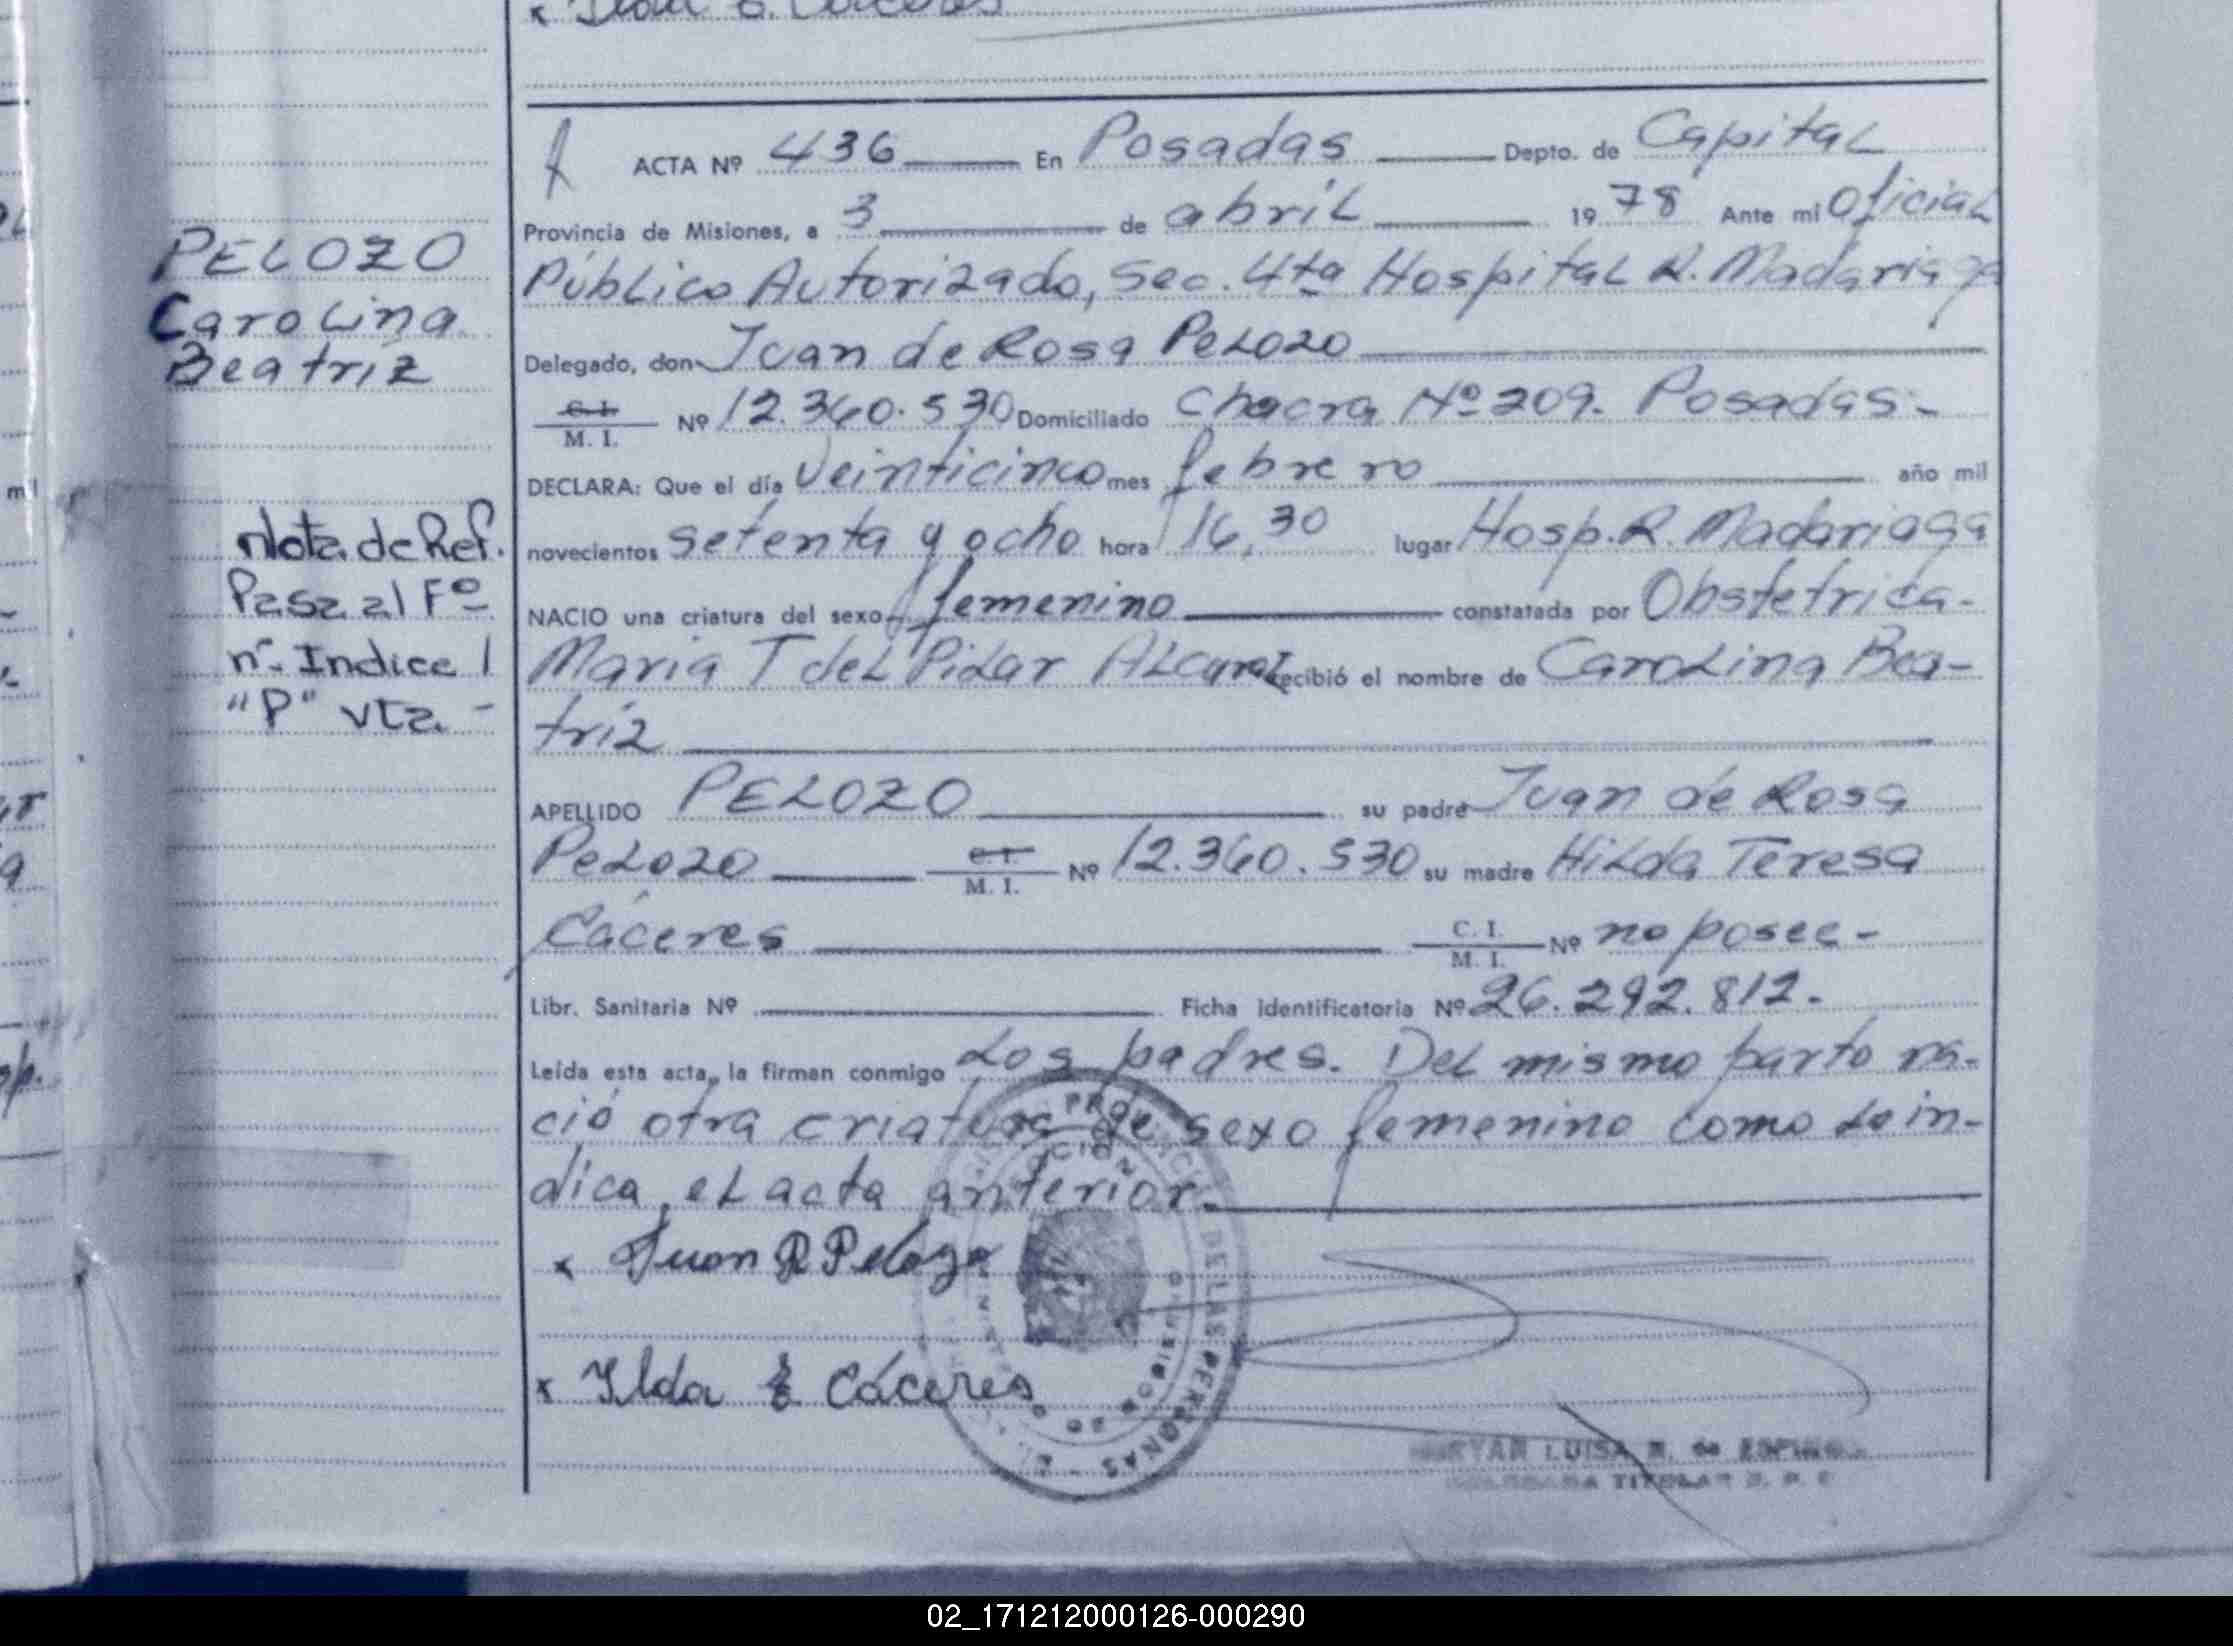 ACTA Nº 436 En Posadas Depto. de Capital
Provincia de Misiones, a 3 de abril 1978 Ante mi Oficial
Público Autorizado, Sec. 4ta Hospital R. Madariaga
Delegado, don Juan de Rosa Pelozo
C. I. M. I. Nº 12.360.530 Domiciliado Chacra Nº 209. Posadas-
DECLARA: Que el día Veinticinco mes febrero año mil
novecientos setenta y ocho hora 16,30 lugar Hosp. R. Madariaga
NACIO una criatura del sexo femenino constatada por Obstetrica-
Maria T del Pilar recibió el nombre de Carolina Bea-
tríz
APELLIDO PELOZO su padre Juan de Rosa
Pelozo C. I. M. I. Nº 12.360.530 su madre Hilda Teresa
Cáceres C. I. M. I. Nº no posee-
Libr. Sanitaria Nº Ficha identificatoria Nº 26.292.812.
Leída esta acta, la firman conmigo Los padres. Del mismo parto na-
ció otra criatura de sexo femenino como lo in-
dica, el acta anterior.
x Juan R Pelozo
x Ilda Cáceres
LUISA
TITULAR
PELOZO
Carolina
Beatríz
Nota de Ref.
Pasa al Fº
nº Indice 1
"P" vta.-
DE LAS PERSONAS
02_171212000126-000290